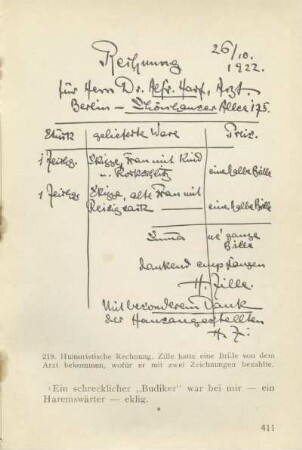 Rechnung
26/10. 1922.
für Herrn Dr. Alfr. Harf, Arzt
Berlin – Schönhauser Allee 175.
Stück gelieferte Ware Preis.
1 Zeichng. Skizze, Frau mit Kind
u. eine halbe Brille
1 Zeichg. Skizze, alte Frau mit
eine halbe Brille
Suma ne' ganze
Brille
dankend empfangen
H. Zille.
Mit besonderem Dank
der Hausangestellten
H. Zi.
219. Humoristische Rechnung. Zille hatte eine Brille von dem
Arzt bekommen, wofür er mit zwei Zeichnungen bezahlte.
‹Ein schrecklicher „Budiker" war bei mir — ein
Haremswärter — eklig.
411